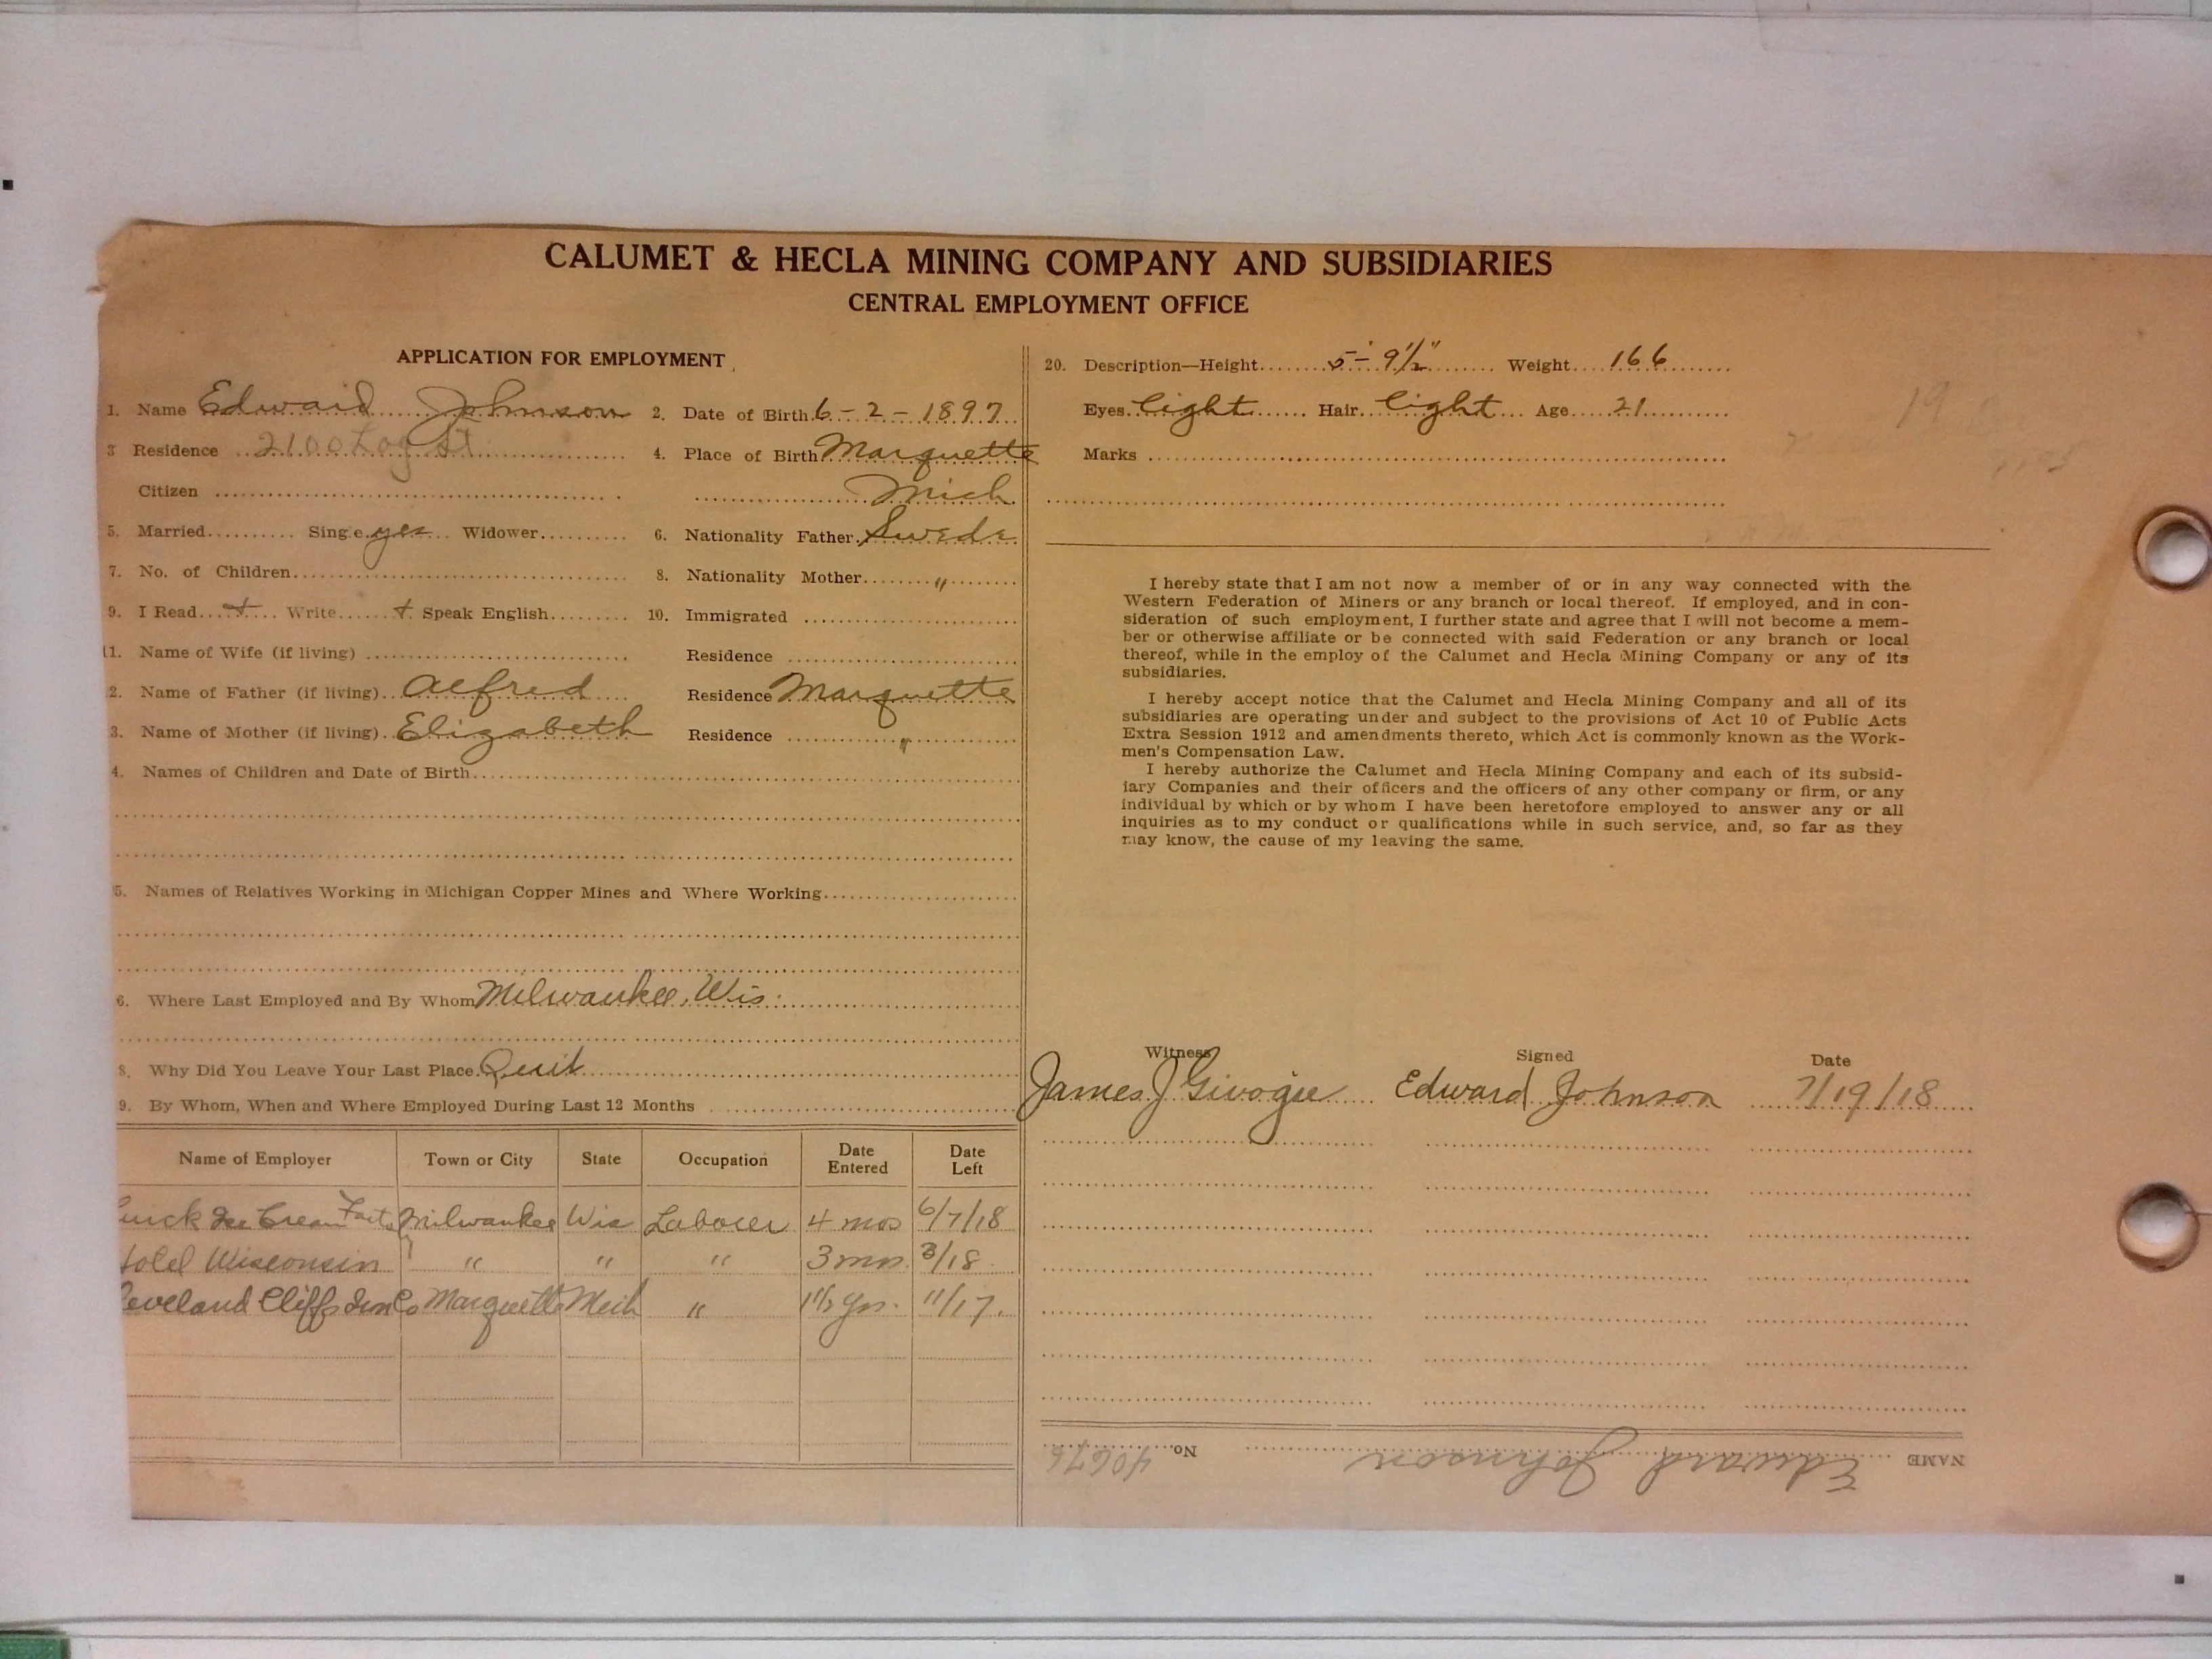 CALUMET & HECLA MINING COMPANY AND SUBSIDIARIES
CENTRAL EMPLOYMENT OFFICE
APPLICATION FOR EMPLOYMENT
1. Name Edward Johnson 2. Date of Birth 6-2-1897
3 Residence 2100 Log St 4. Place of Birth Marquette
Citizen Mich
5. Married Single yes Widower 6. Nationality Father Swede
7. No. of Children 8. Nationality Mother "
9. I Read + Write + Speak English 10. Immigrated
11. Name of Wife (if living) Residence
2. Name of Father (if living) Alfred Residence Marquette
3. Name of Mother (if living) Elizabeth Residence "
4. Names of Children and Date of Birth
5. Names of Relatives Working in Michigan Copper Mines and Where Working
6. Where Last Employed and By Whom Milwaukee, Wis.
8. Why Did You Leave Your Last Place Quit
9. By Whom, When and Where Employed During Last 12 Months
Name of Employer Town or City State Occupation Date Entered Date Left
uick Ice Cream Fact. Milwaukee Wis Laborer 4 mos 6/7/18
otel Wisconsin " " " 3 mos. 3/18
leveland Cliffs Iron Co Marquette Mich " 1 1/2 yrs. 11/17.
20. Description—Height 5'-9 1/2" Weight 166
Eyes light Hair light Age 21
Marks
19
I hereby state that I am not now a member of or in any way connected with the
Western Federation of Miners or any branch or local thereof. If employed, and in con-
sideration of such employment, I further state and agree that I will not become a mem-
ber or otherwise affiliate or be connected with said Federation or any branch or local
thereof, while in the employ of the Calumet and Hecla Mining Company or any of its
subsidiaries.
I hereby accept notice that the Calumet and Hecla Mining Company and all of its
subsidiaries are operating under and subject to the provisions of Act 10 of Public Acts
Extra Session 1912 and amendments thereto, which Act is commonly known as the Work-
men's Compensation Law.
I hereby authorize the Calumet and Hecla Mining Company and each of its subsid-
iary Companies and their officers and the officers of any other company or firm, or any
individual by which or by whom I have been heretofore employed to answer any or all
inquiries as to my conduct or qualifications while in such service, and, so far as they
may know, the cause of my leaving the same.
Witness Signed Date
James J Edward Johnson 7/19/18
NAME Edward Johnson No. 40676